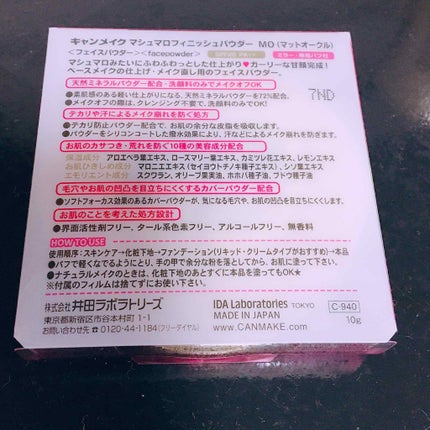 キャンメイク マシュマロフィニッシュパウダー MO（マットオークル）
<フェイスパウダー><facepowder>
マシュマロみたいにふわふわっとした仕上がり♥ガーリーな甘顔完成！
ベースメイクの仕上げ・メイク直し用のフェイスパウダー。
天然ミネラルパウダー配合・洗顔料のみでメイクオフOK
●素肌感のある軽い仕上がりになる、天然ミネラルパウダーを72%配合。
●メイクオフの際は、クレンジング不要で、洗顔料のみでOK！
7ND
テカリや汗によるメイク崩れを防ぐ処方
●テカリ防止パウダー配合で、お肌の余分な皮脂を吸収します。
●パウダーをシリコンコートした撥水効果により、汗などによるメイク崩れを防ぎます。
お肌のカサつき・荒れを防ぐ10種の美容成分配合
保湿成分 アロエベラ葉エキス、ローズマリー葉エキス、カミツレ花エキス、レモンエキス
お肌ひきしめ成分 マロニエエキス（セイヨウトチノキ種子エキス）、シソ葉エキス
エモリエント成分 スクワラン、オリーブ果実油、ホホバ種子油、ブドウ種子油
毛穴やお肌の凹凸を目立ちにくくするカバーパウダー配合
●ソフトフォーカス効果のあるカバーパウダーが、気になる毛穴や、お肌の凹凸を目立ちにくくします。
お肌のことを考えた処方設計
●界面活性剤フリー、タール系色素フリー、アルコールフリー、無香料
HOW TO USE
使用順序：スキンケア→化粧下地→ファンデーション（リキッド・クリームタイプがおすすめ）→本品
●パフで軽くなでるようにとり、手の甲で余分な粉を落としてから、お肌に塗布してください。
●ナチュラルメイクのときは、化粧下地のあとすぐに本品を塗ってもOK★
※付属のフィルムは捨てずにお使い下さい。
株式会社 井田ラボラトリーズ
東京都新宿区市谷本村町 1-1
お問い合わせ先 ☎ 0120-44-1184（フリーダイヤル）
IDA Laboratories TOKYO
MADE IN JAPAN
www.CANMAKE.COM
C-940
10g